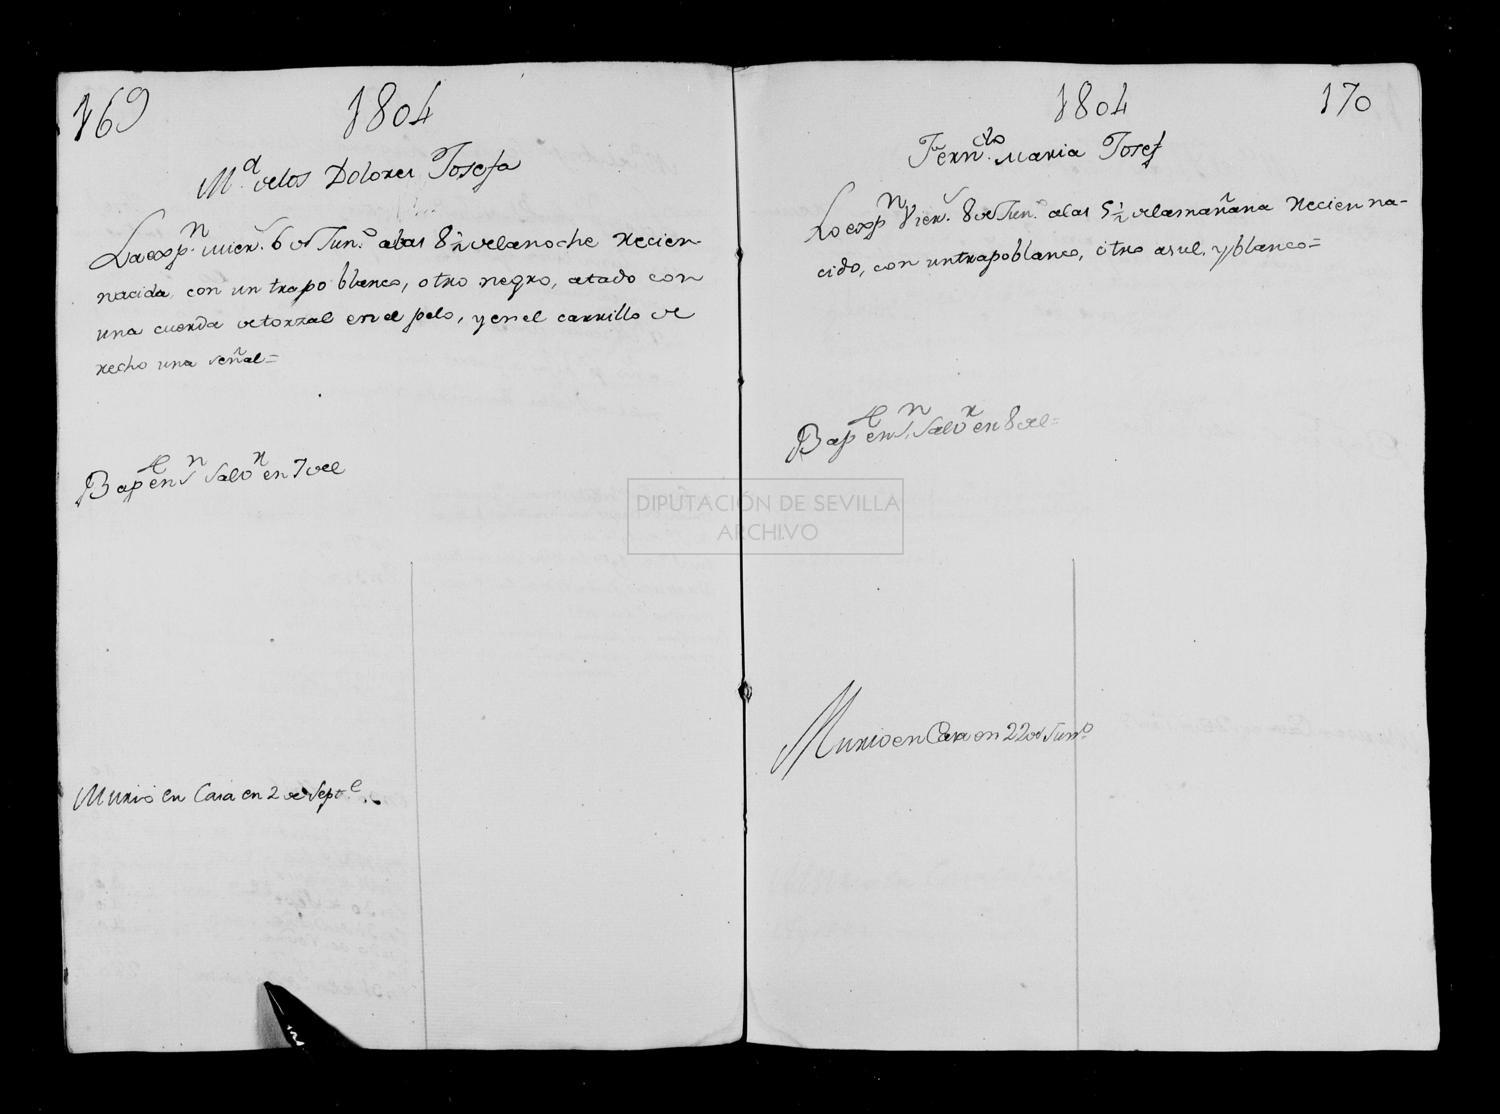 169
1804
M.ª de los Dolores Josefa
La exp.n Mier.s 6 de Jun.o a las 8 ½ de la noche Recien
nacida, con un trapo blanco, otro negro, atado con
una cuerda de torzal en el pelo, y en el carrillo de
recho una señal=
Bap.e en S.n Salv.r en 7 del
Murió en Casa en 2 de Sept.e
1804
170
Fern.do Maria Josef
Lo exp.n Vier.s 8 de Jun.o a las 5 ½ de la mañana Recien na-
cido, con un trapo blanco, otro asul, y blanco=
Bap.e en S.n Salv.r en 8 del=
Murio en Casa en 22 de Jun.o
DIPUTACIÓN DE SEVILLA
ARCHIVO